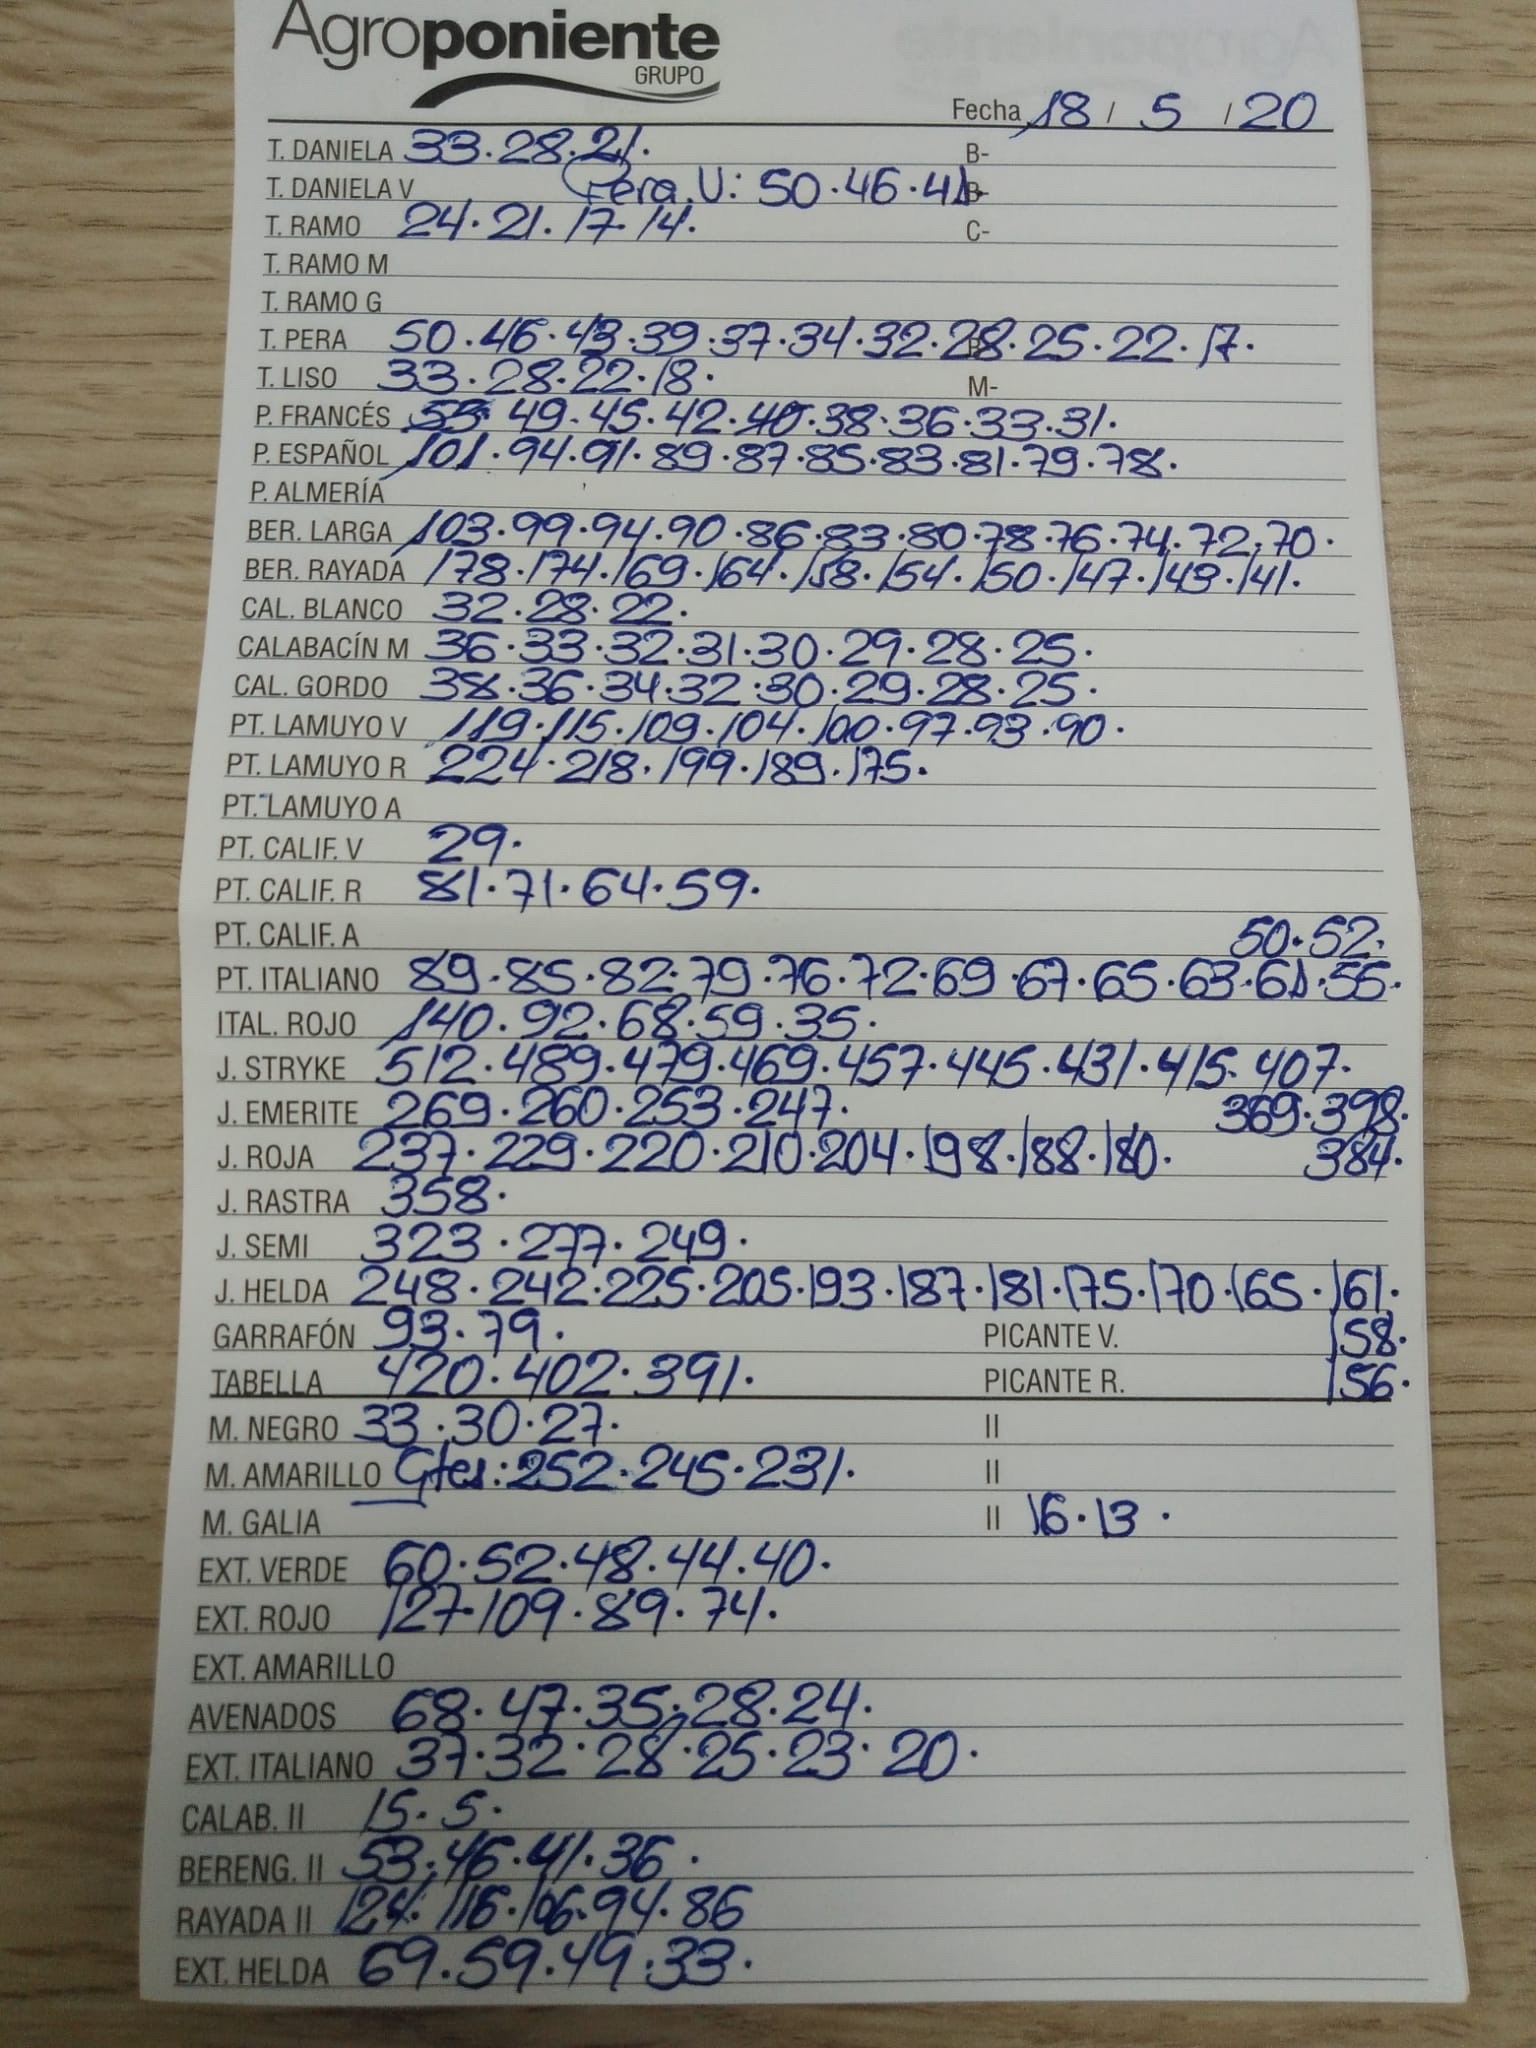 Agroponiente
GRUPO
Fecha 18 / 5 / 20
T. DANIELA 33.28.21. B-
T. DANIELA V Pera V: 50.46.41. B-
T. RAMO 24.21.17.14. C-
T. RAMO M
T. RAMO G
T. PERA 50.46.43.39.37.34.32.28.25.22.17.
T. LISO 33.28.22.18. M-
P. FRANCÉS 53.49.45.42.40.38.36.33.31.
P. ESPAÑOL 101.94.91.89.87.85.83.81.79.78.
P. ALMERÍA
BER. LARGA 103.99.94.90.86.83.80.78.76.74.72.70.
BER. RAYADA 178.174.169.164.158.154.150.147.143.141.
CAL. BLANCO 32.28.22.
CALABACÍN M 36.33.32.31.30.29.28.25.
CAL. GORDO 38.36.34.32.30.29.28.25.
PT. LAMUYO V 119.115.109.104.100.97.93.90.
PT. LAMUYO R 224.218.199.189.175.
PT. LAMUYO A
PT. CALIF. V 29.
PT. CALIF. R 81.71.64.59.
PT. CALIF. A 50.52.
PT. ITALIANO 89.85.82.79.76.72.69.67.65.63.61.55.
ITAL. ROJO 140.92.68.59.35.
J. STRYKE 512.489.479.469.457.445.431.415.407.
J. EMERITE 269.260.253.247. 369.398.
J. ROJA 237.229.220.210.204.198.188.180. 384.
J. RASTRA 358.
J. SEMI 323.277.249.
J. HELDA 248.242.225.205.193.187.181.175.170.165.161.
GARRAFÓN 93.79. PICANTE V. 158.
TABELLA 420.402.391. PICANTE R. 156.
M. NEGRO 33.30.27. II
M. AMARILLO Gtes: 252.245.231. II
M. GALIA II 16.13.
EXT. VERDE 60.52.48.44.40.
EXT. ROJO 127.109.89.74.
EXT. AMARILLO
AVENADOS 68.47.35.28.24.
EXT. ITALIANO 37.32.28.25.23.20.
CALAB. II 15.5.
BERENG. II 53.46.41.36.
RAYADA II 124.116.106.94.86
EXT. HELDA 69.59.49.33.